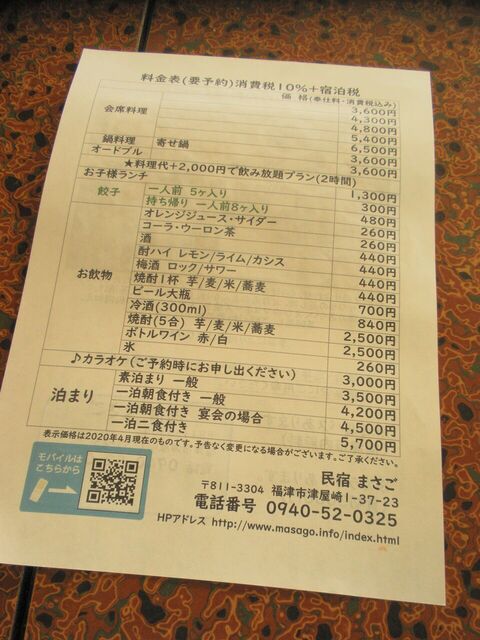 料金表(要予約)消費税10%+宿泊税
価 格(奉仕料・消費税込み)
会席料理 3,600円
4,300円
4,800円
5,400円
6,500円
鍋料理 寄せ鍋 3,600円
オードブル 3,600円
★料理代+2,000円で飲み放題プラン(2時間)
お子様ランチ 1,300円
餃子 一人前 5ヶ入り 300円
持ち帰り 一人前8ヶ入り 480円
お飲物 オレンジジュース・サイダー 260円
コーラ・ウーロン茶 260円
酒 440円
酎ハイ レモン/ライム/カシス 440円
梅酒 ロック/サワー 440円
焼酎1杯 芋/麦/米/蕎麦 440円
ビール大瓶 700円
冷酒(300ml) 840円
焼酎(5合) 芋/麦/米/蕎麦 2,500円
ボトルワイン 赤/白 2,500円
氷 260円
♪カラオケ(ご予約時にお申し出ください) 3,000円
泊まり 素泊まり 一般 3,500円
一泊朝食付き 一般 4,200円
一泊朝食付き 宴会の場合 4,500円
一泊二食付き 5,700円
表示価格は2020年4月現在のものです。予告なく変更になる場合がございます。ご了承ください。
モバイルは
こちらから
民宿 まさご
〒811-3304 福津市津屋崎1-37-23
電話番号 0940-52-0325
HPアドレス http://www.masago.info/index.html